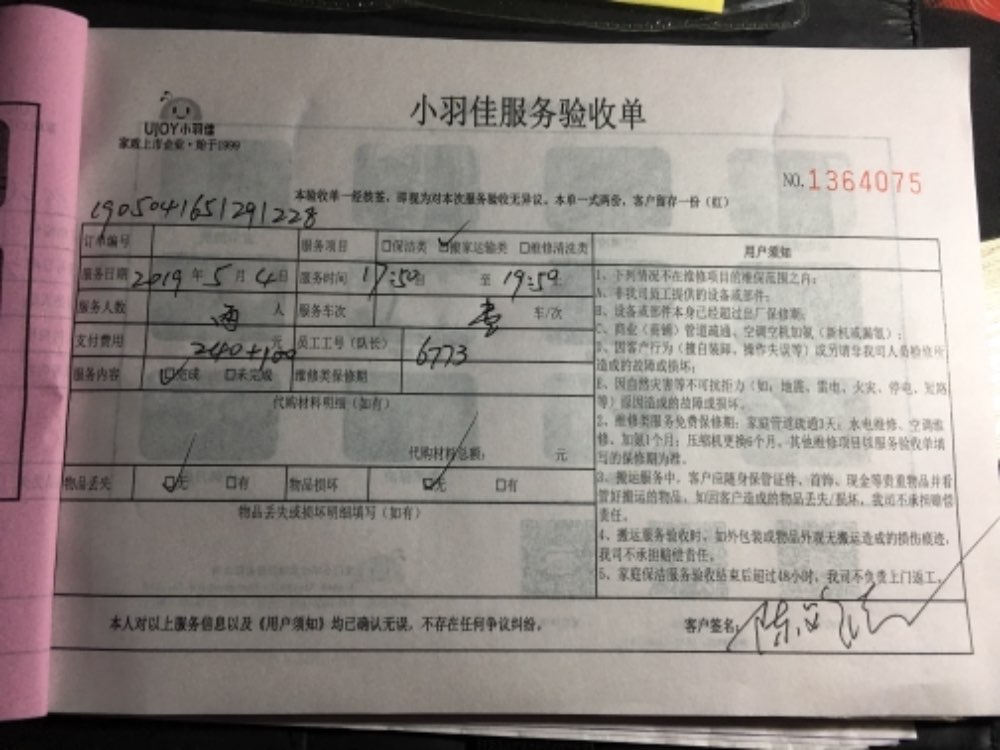 小羽佳服务验收单
UJOY小羽佳
家政上市企业·始于1999
NO.1364075
本验收单一经核签，即视为对本次服务验收无异议。本单一式两份，客户留存一份（红）
1905041651291228
订单编号 服务项目 □保洁类 ☑搬家运输类 □维修清洗类
服务日期 2019 年 5 月 4 日 服务时间 17:50 至 19:50
服务人数 两 人 服务车次 壹 车/次
支付费用 240+100 元 员工工号（队长） 6773
服务内容 ☑完成 □未完成 维修类保修期
代购材料明细（如有）
代购材料总额： 元
物品丢失 ☑无 □有 物品损坏 ☑无 □有
物品丢失或损坏明细填写（如有）
用户须知
1、下列情况不在维修项目的维保范围之内：
A、非我司员工提供的设备或部件；
B、设备或部件本身已经超过出厂保修期；
C、商业（商铺）管道疏通、空调空机加氨（新机或漏氨）；
D、因客户行为（擅自装卸、操作失误等）或另请非我司人员检修所
造成的故障或损坏；
E、因自然灾害等不可抗拒力（如：地震、雷电、火灾、停电、短路
等）原因造成的故障或损坏。
2、维修类服务免费保修期：家庭管道疏通3天；水电维修、空调维
修、加氨1个月；压缩机更换6个月。其他维修项目以服务验收单填
写的保修期为准。
3、搬运服务中，客户应随身保管证件、首饰、现金等贵重物品并看
管好搬运的物品，如因客户造成的物品丢失/损坏，我司不承担赔偿
责任。
4、搬运服务验收时，如外包装或物品外观无搬运造成的损伤痕迹，
我司不承担赔偿责任。
5、家庭保洁服务验收结束后超过48小时，我司不负责上门返工。
本人对以上服务信息以及《用户须知》均已确认无误，不存在任何争议纠纷。 客户签名：